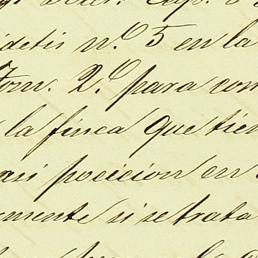 detis n.º 5 en la
Tom. 2.º para con
la finca que tien
asi posicion en
emente si se trata